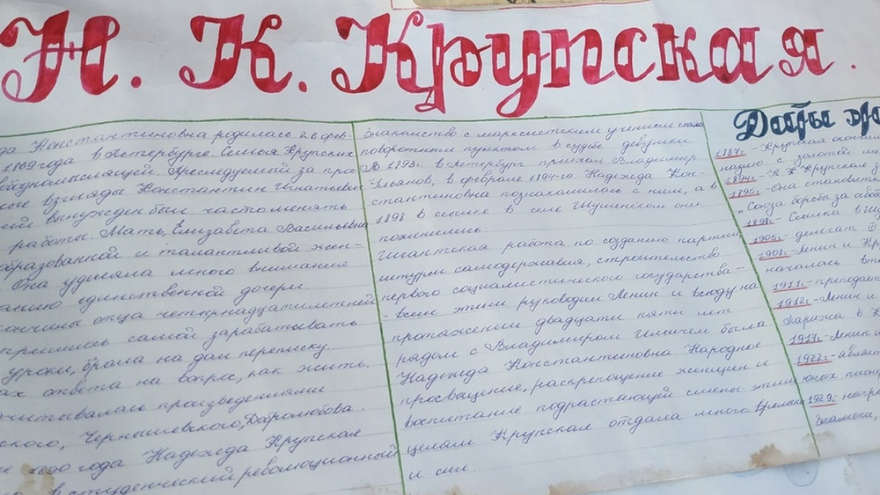 Н. К. Крупская.
да Константиновна родилась 26 фев-
1869 года в Петербурге. Семья Крупских
ободномыслящей. Преследуемый за про-
ские взгляды Константин Игнатьевич
кий вынужден был часто менять
работы. Мать, Елизавета Васильевна
бразованной и талантливой жен-
Она уделяла много внимания
танию единственной дочери.
кончины отца четырнадцатилетней
пришлось самой зарабатывать
уроки, брала на дом переписку.
ах ответа на вопрос, как жить,
читывалась произведениями
ского, Чернышевского, Добролюбова.
года Надежда Крупская
в студенческий революционный
Знакомство с марксистским учением стало
поворотным пунктом в судьбе девушки.
В 1893г. в Петербург приехал Владимир
Ульянов, в феврале 1894-го Надежда Кон-
стантиновна познакомилась с ним, а в
1898 в ссылке в селе Шушенском они
поженились.
Гигантская работа по созданию партии,
штурм самодержавия, строительство
первого социалистического государства-
-всем этим руководил Ленин и всюду на
протяжении двадцати пяти лет
рядом с Владимиром Ильичем была
Надежда Константиновна. Народное
просвещение, раскрепощение женщин и
воспитание подрастающей смены- этим
целям Крупская отдала много времени
и сил.
Даты
-Крупская окончила
с золотой
1894г.-Н.К. Крупская
-Она становится
"Союза борьбы за освоб
1898г.-Ссылка в Шу
-делегат
-Ленин и Кру
началась
1911г.-преподает
1912г.-Ленин и
Парижа в К
1917г.-Ленин и
1922г.-являет
юных пионе
1929г.-награ
Знамени,